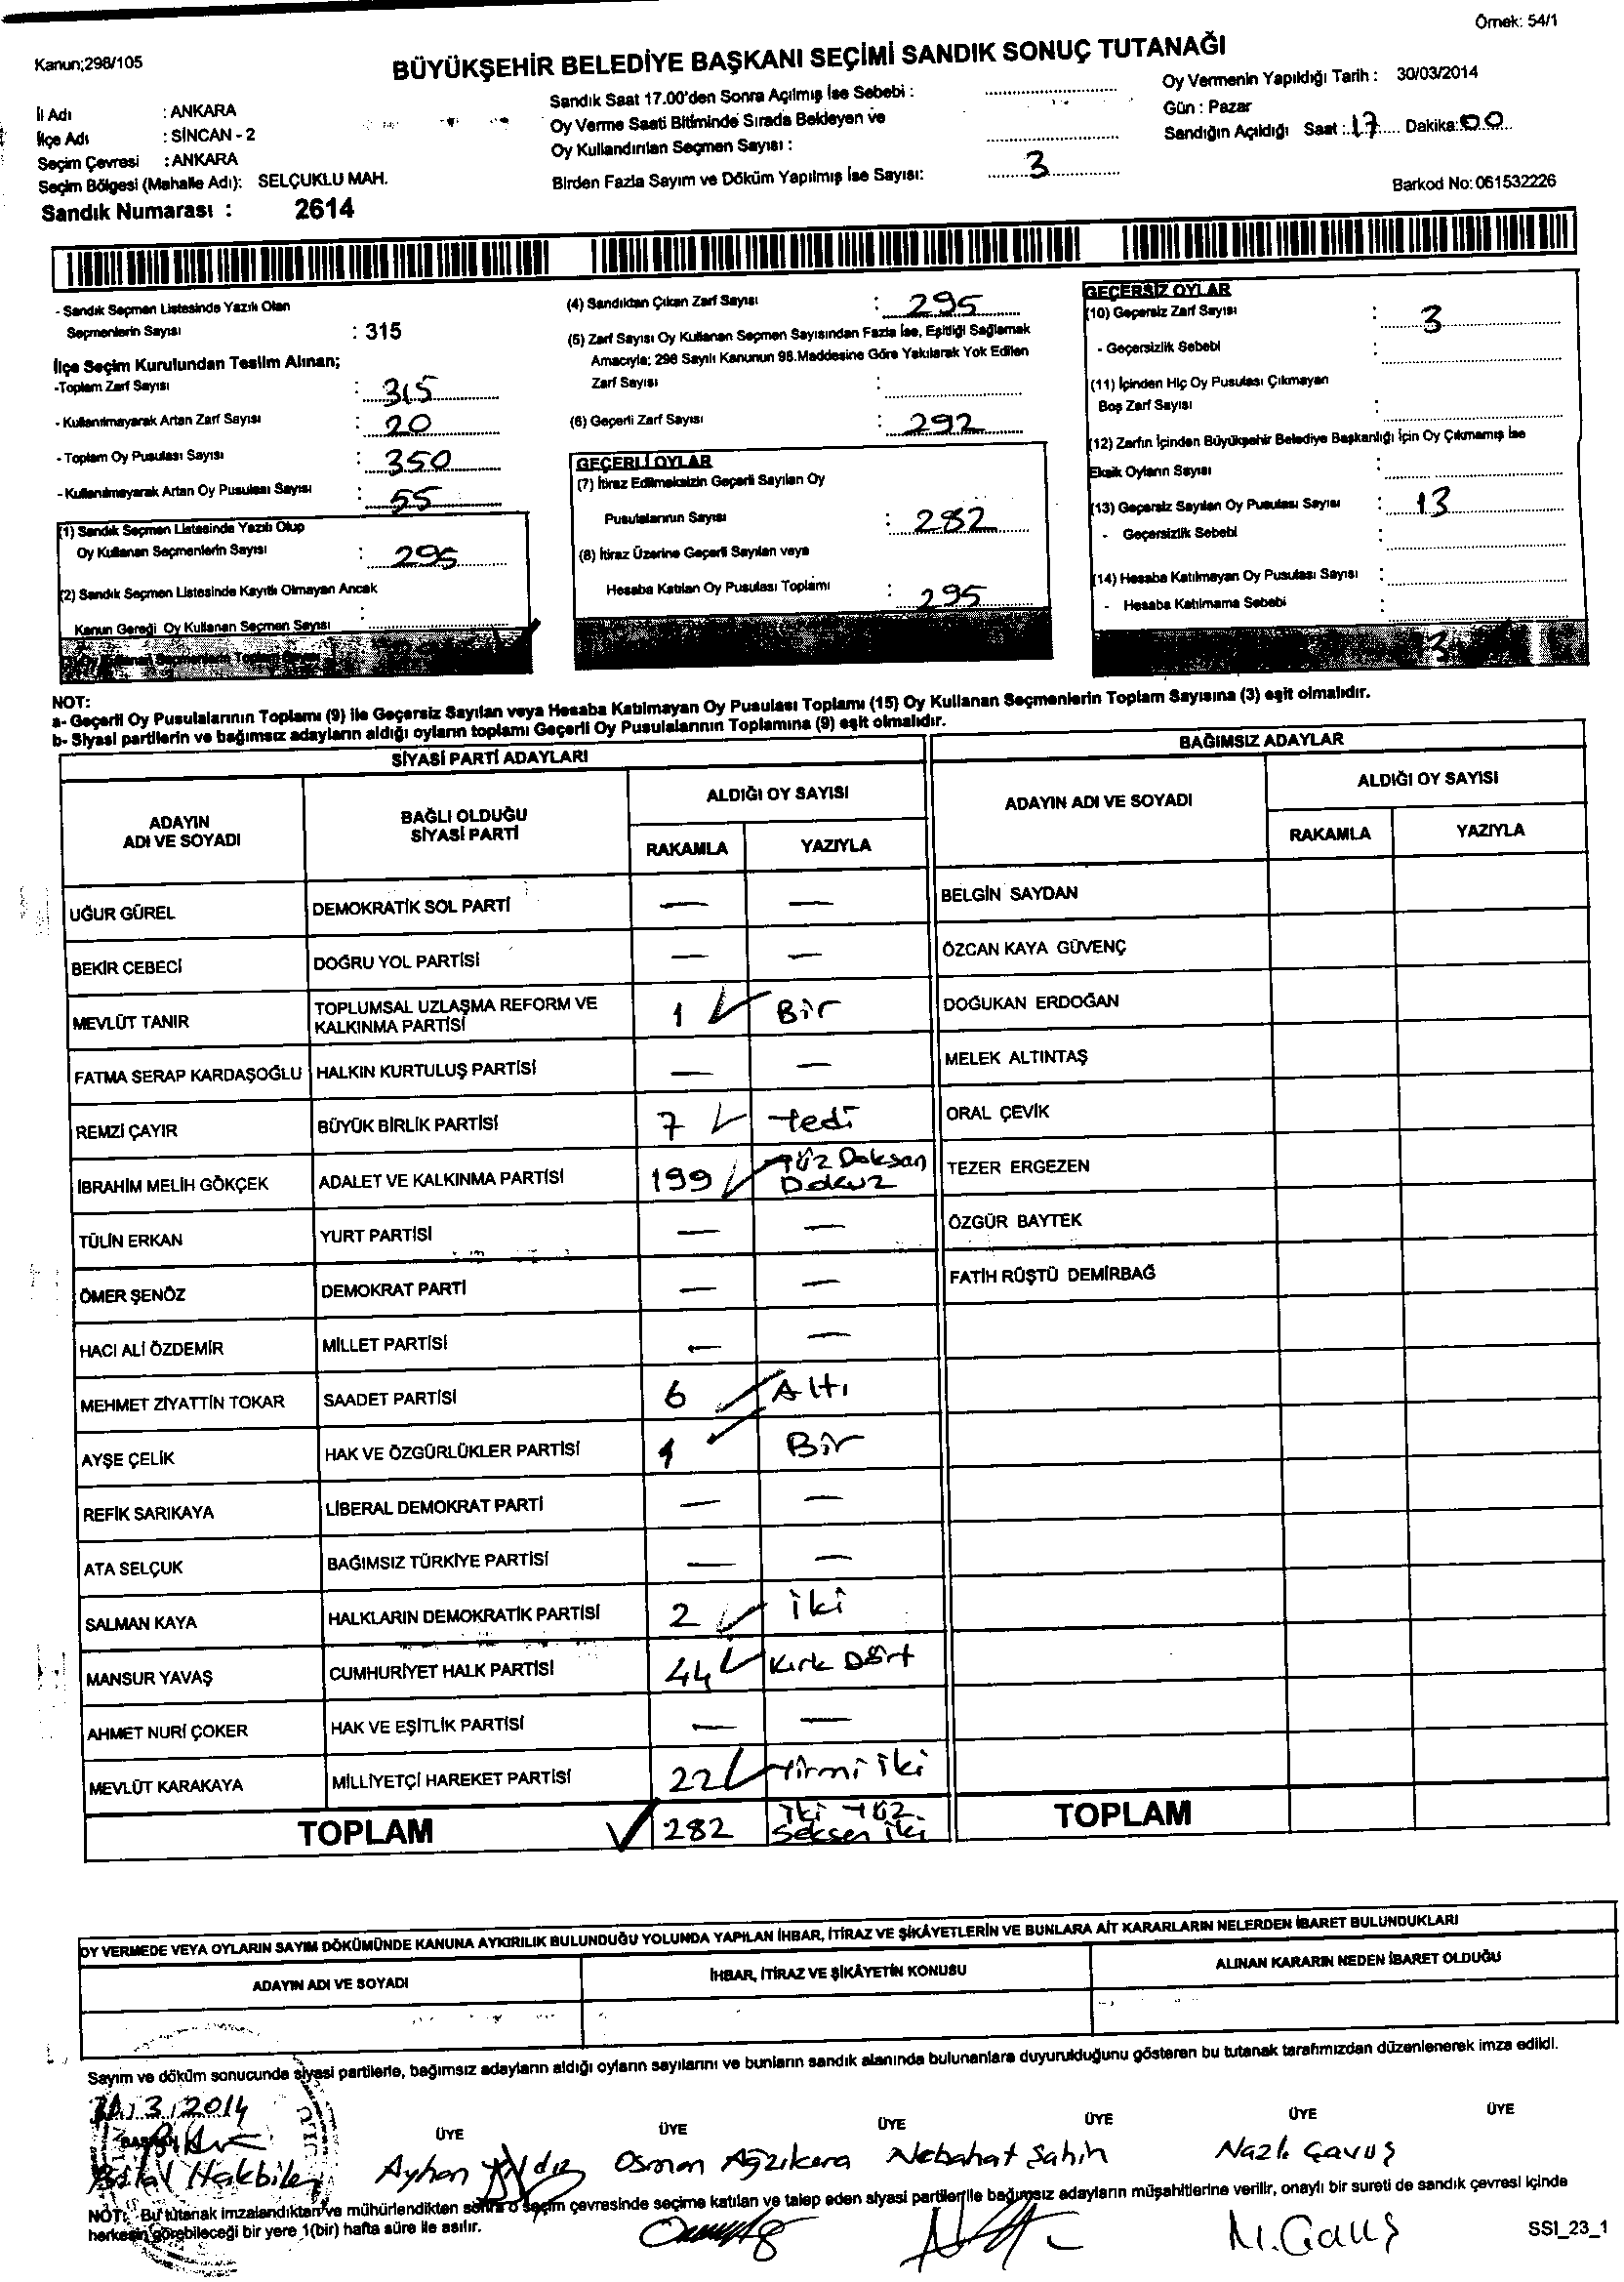 Örnek: 54/1
Kanun;298/105
BÜYÜKŞEHİR BELEDİYE BAŞKANI SEÇİMİ SANDIK SONUÇ TUTANAĞI
İl Adı : ANKARA
İlçe Adı : SİNCAN - 2
Seçim Çevresi : ANKARA
Seçim Bölgesi (Mahalle Adı): SELÇUKLU MAH.
Sandık Numarası : 2614
Sandık Saat 17.00'den Sonra Açılmış İse Sebebi :
Oy Verme Saati Bitiminde Sırada Bekleyen ve
Oy Kullandırılan Seçmen Sayısı :
Birden Fazla Sayım ve Döküm Yapılmış İse Sayısı: 3
Oy Vermenin Yapıldığı Tarih : 30/03/2014
Gün : Pazar
Sandığın Açıldığı Saat : 17 Dakika: 00
Barkod No: 061532226
- Sandık Seçmen Listesinde Yazılı Olan
Seçmenlerin Sayısı : 315
İlçe Seçim Kurulundan Teslim Alınan;
-Toplam Zarf Sayısı : 315
- Kullanılmayarak Artan Zarf Sayısı : 20
- Toplam Oy Pusulası Sayısı : 350
- Kullanılmayarak Artan Oy Pusulası Sayısı : 55
(1) Sandık Seçmen Listesinde Yazılı Olup
Oy Kullanan Seçmenlerin Sayısı : 295
(2) Sandık Seçmen Listesinde Kayıtlı Olmayan Ancak
Kanun Gereği Oy Kullanan Seçmen Sayısı :
(4) Sandıktan Çıkan Zarf Sayısı : 295
(5) Zarf Sayısı Oy Kullanan Seçmen Sayısından Fazla İse, Eşitliği Sağlamak
Amacıyla; 298 Sayılı Kanunun 98.Maddesine Göre Yakılarak Yok Edilen
Zarf Sayısı :
(6) Geçerli Zarf Sayısı : 292
GEÇERLİ OYLAR
(7) İtiraz Edilmeksizin Geçerli Sayılan Oy
Pusulalarının Sayısı : 282
(8) İtiraz Üzerine Geçerli Sayılan veya
Hesaba Katılan Oy Pusulası Toplamı : 295
GEÇERSİZ OYLAR
(10) Geçersiz Zarf Sayısı : 3
- Geçersizlik Sebebi :
(11) İçinden Hiç Oy Pusulası Çıkmayan
Boş Zarf Sayısı :
(12) Zarfın İçinden Büyükşehir Belediye Başkanlığı İçin Oy Çıkmamış İse
Eksik Oyların Sayısı :
(13) Geçersiz Sayılan Oy Pusulası Sayısı : 13
- Geçersizlik Sebebi :
(14) Hesaba Katılmayan Oy Pusulası Sayısı :
- Hesaba Katılmama Sebebi :
13
NOT:
a- Geçerli Oy Pusulalarının Toplamı (9) ile Geçersiz Sayılan veya Hesaba Katılmayan Oy Pusulası Toplamı (15) Oy Kullanan Seçmenlerin Toplam Sayısına (3) eşit olmalıdır.
b- Siyasi partilerin ve bağımsız adayların aldığı oyların toplamı Geçerli Oy Pusulalarının Toplamına (9) eşit olmalıdır.
SİYASİ PARTİ ADAYLARI
ADAYIN
ADI VE SOYADI
BAĞLI OLDUĞU
SİYASİ PARTİ
ALDIĞI OY SAYISI
RAKAMLA YAZIYLA
UĞUR GÜREL DEMOKRATİK SOL PARTİ — —
BEKİR CEBECİ DOĞRU YOL PARTİSİ — —
MEVLÜT TANIR TOPLUMSAL UZLAŞMA REFORM VE
KALKINMA PARTİSİ 1 Bir
FATMA SERAP KARDAŞOĞLU HALKIN KURTULUŞ PARTİSİ — —
REMZİ ÇAYIR BÜYÜK BİRLİK PARTİSİ 7 Yedi
İBRAHİM MELİH GÖKÇEK ADALET VE KALKINMA PARTİSİ 199 Yüz Doksan
Dokuz
TÜLİN ERKAN YURT PARTİSİ — —
ÖMER ŞENÖZ DEMOKRAT PARTİ — —
HACI ALİ ÖZDEMİR MİLLET PARTİSİ — —
MEHMET ZİYATTİN TOKAR SAADET PARTİSİ 6 Altı
AYŞE ÇELİK HAK VE ÖZGÜRLÜKLER PARTİSİ 1 Bir
REFİK SARIKAYA LİBERAL DEMOKRAT PARTİ — —
ATA SELÇUK BAĞIMSIZ TÜRKİYE PARTİSİ — —
SALMAN KAYA HALKLARIN DEMOKRATİK PARTİSİ 2 iki
MANSUR YAVAŞ CUMHURİYET HALK PARTİSİ 44 Kırk Dört
AHMET NURİ ÇOKER HAK VE EŞİTLİK PARTİSİ — —
MEVLÜT KARAKAYA MİLLİYETÇİ HAREKET PARTİSİ 22 Yirmi iki
TOPLAM 282 iki Yüz
Seksen iki
BAĞIMSIZ ADAYLAR
ADAYIN ADI VE SOYADI
ALDIĞI OY SAYISI
RAKAMLA YAZIYLA
BELGİN SAYDAN
ÖZCAN KAYA GÜVENÇ
DOĞUKAN ERDOĞAN
MELEK ALTINTAŞ
ORAL ÇEVİK
TEZER ERGEZEN
ÖZGÜR BAYTEK
FATİH RÜŞTÜ DEMİRBAĞ
TOPLAM
OY VERMEDE VEYA OYLARIN SAYIM DÖKÜMÜNDE KANUNA AYKIRILIK BULUNDUĞU YOLUNDA YAPILAN İHBAR, İTİRAZ VE ŞİKÂYETLERİN VE BUNLARA AİT KARARLARIN NELERDEN İBARET BULUNDUKLARI
ADAYIN ADI VE SOYADI
İHBAR, İTİRAZ VE ŞİKÂYETİN KONUSU
ALINAN KARARIN NEDEN İBARET OLDUĞU
Sayım ve döküm sonucunda siyasi partilerle, bağımsız adayların aldığı oyların sayılarını ve bunların sandık alanında bulunanlara duyurulduğunu gösteren bu tutanak tarafımızdan düzenlenerek imza edildi.
3 / 2014
BAŞKAN ÜYE ÜYE ÜYE ÜYE ÜYE ÜYE
Ayhan Yıldız Osman Ağzıkara Nebahat Şahin Nazlı Çavuş
NOT: Bu tutanak imzalandıktan ve mühürlendikten sonra o seçim çevresinde seçime katılan ve talep eden siyasi partiler ile bağımsız adayların müşahitlerine verilir, onaylı bir sureti de sandık çevresi içinde
herkesin görebileceği bir yere 1(bir) hafta süre ile asılır.
SSI_23_1